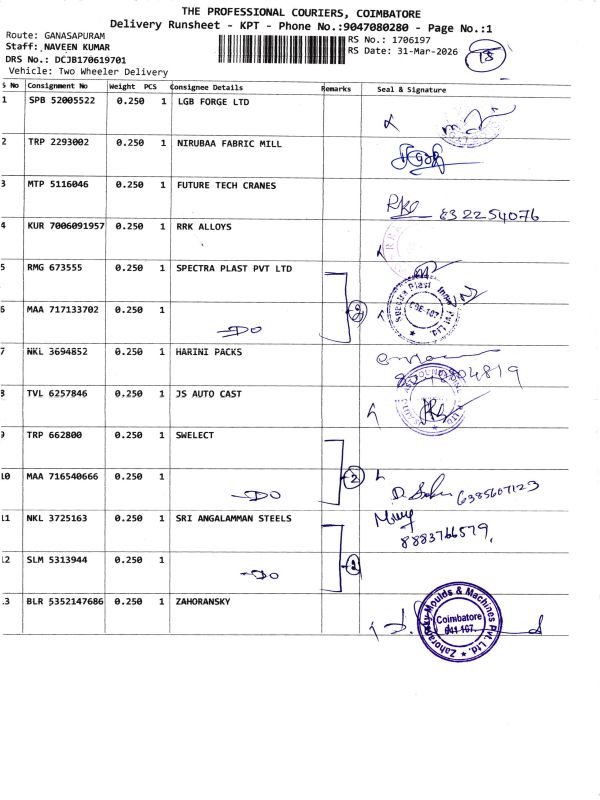 THE PROFESSIONAL COURIERS, COIMBATORE
Delivery Runsheet - KPT - Phone No.:9047080280 - Page No.:1
Route: GANASAPURAM
RS No.: 1706197
Staff: NAVEEN KUMAR
RS Date: 31-Mar-2026
DRS No.: DCJB170619701
Vehicle: Two Wheeler Delivery
S No Consignment No Weight PCS Consignee Details Remarks Seal & Signature
1 SPB 52005522 0.250 1 LGB FORGE LTD
2 TRP 2293002 0.250 1 NIRUBAA FABRIC MILL
3 MTP 5116046 0.250 1 FUTURE TECH CRANES
RKe 632254076
4 KUR 7006091957 0.250 1 RRK ALLOYS
5 RMG 673555 0.250 1 SPECTRA PLAST PVT LTD
Spectra Plast Pvt Ltd.
6 MAA 717133702 0.250 1 -DO 2
7 NKL 3694852 0.250 1 HARINI PACKS
8 TVL 6257846 0.250 1 JS AUTO CAST
9 TRP 662800 0.250 1 SWELECT
10 MAA 716540666 0.250 1 -DO 2
6385607123
11 NKL 3725163 0.250 1 SRI ANGALAMMAN STEELS
8883766579.
12 SLM 5313944 0.250 1 -DO 2
13 BLR 5352147686 0.250 1 ZAHORANSKY
Zahoransky Moulds & Machines Pvt. Ltd.
Coimbatore
641 107.